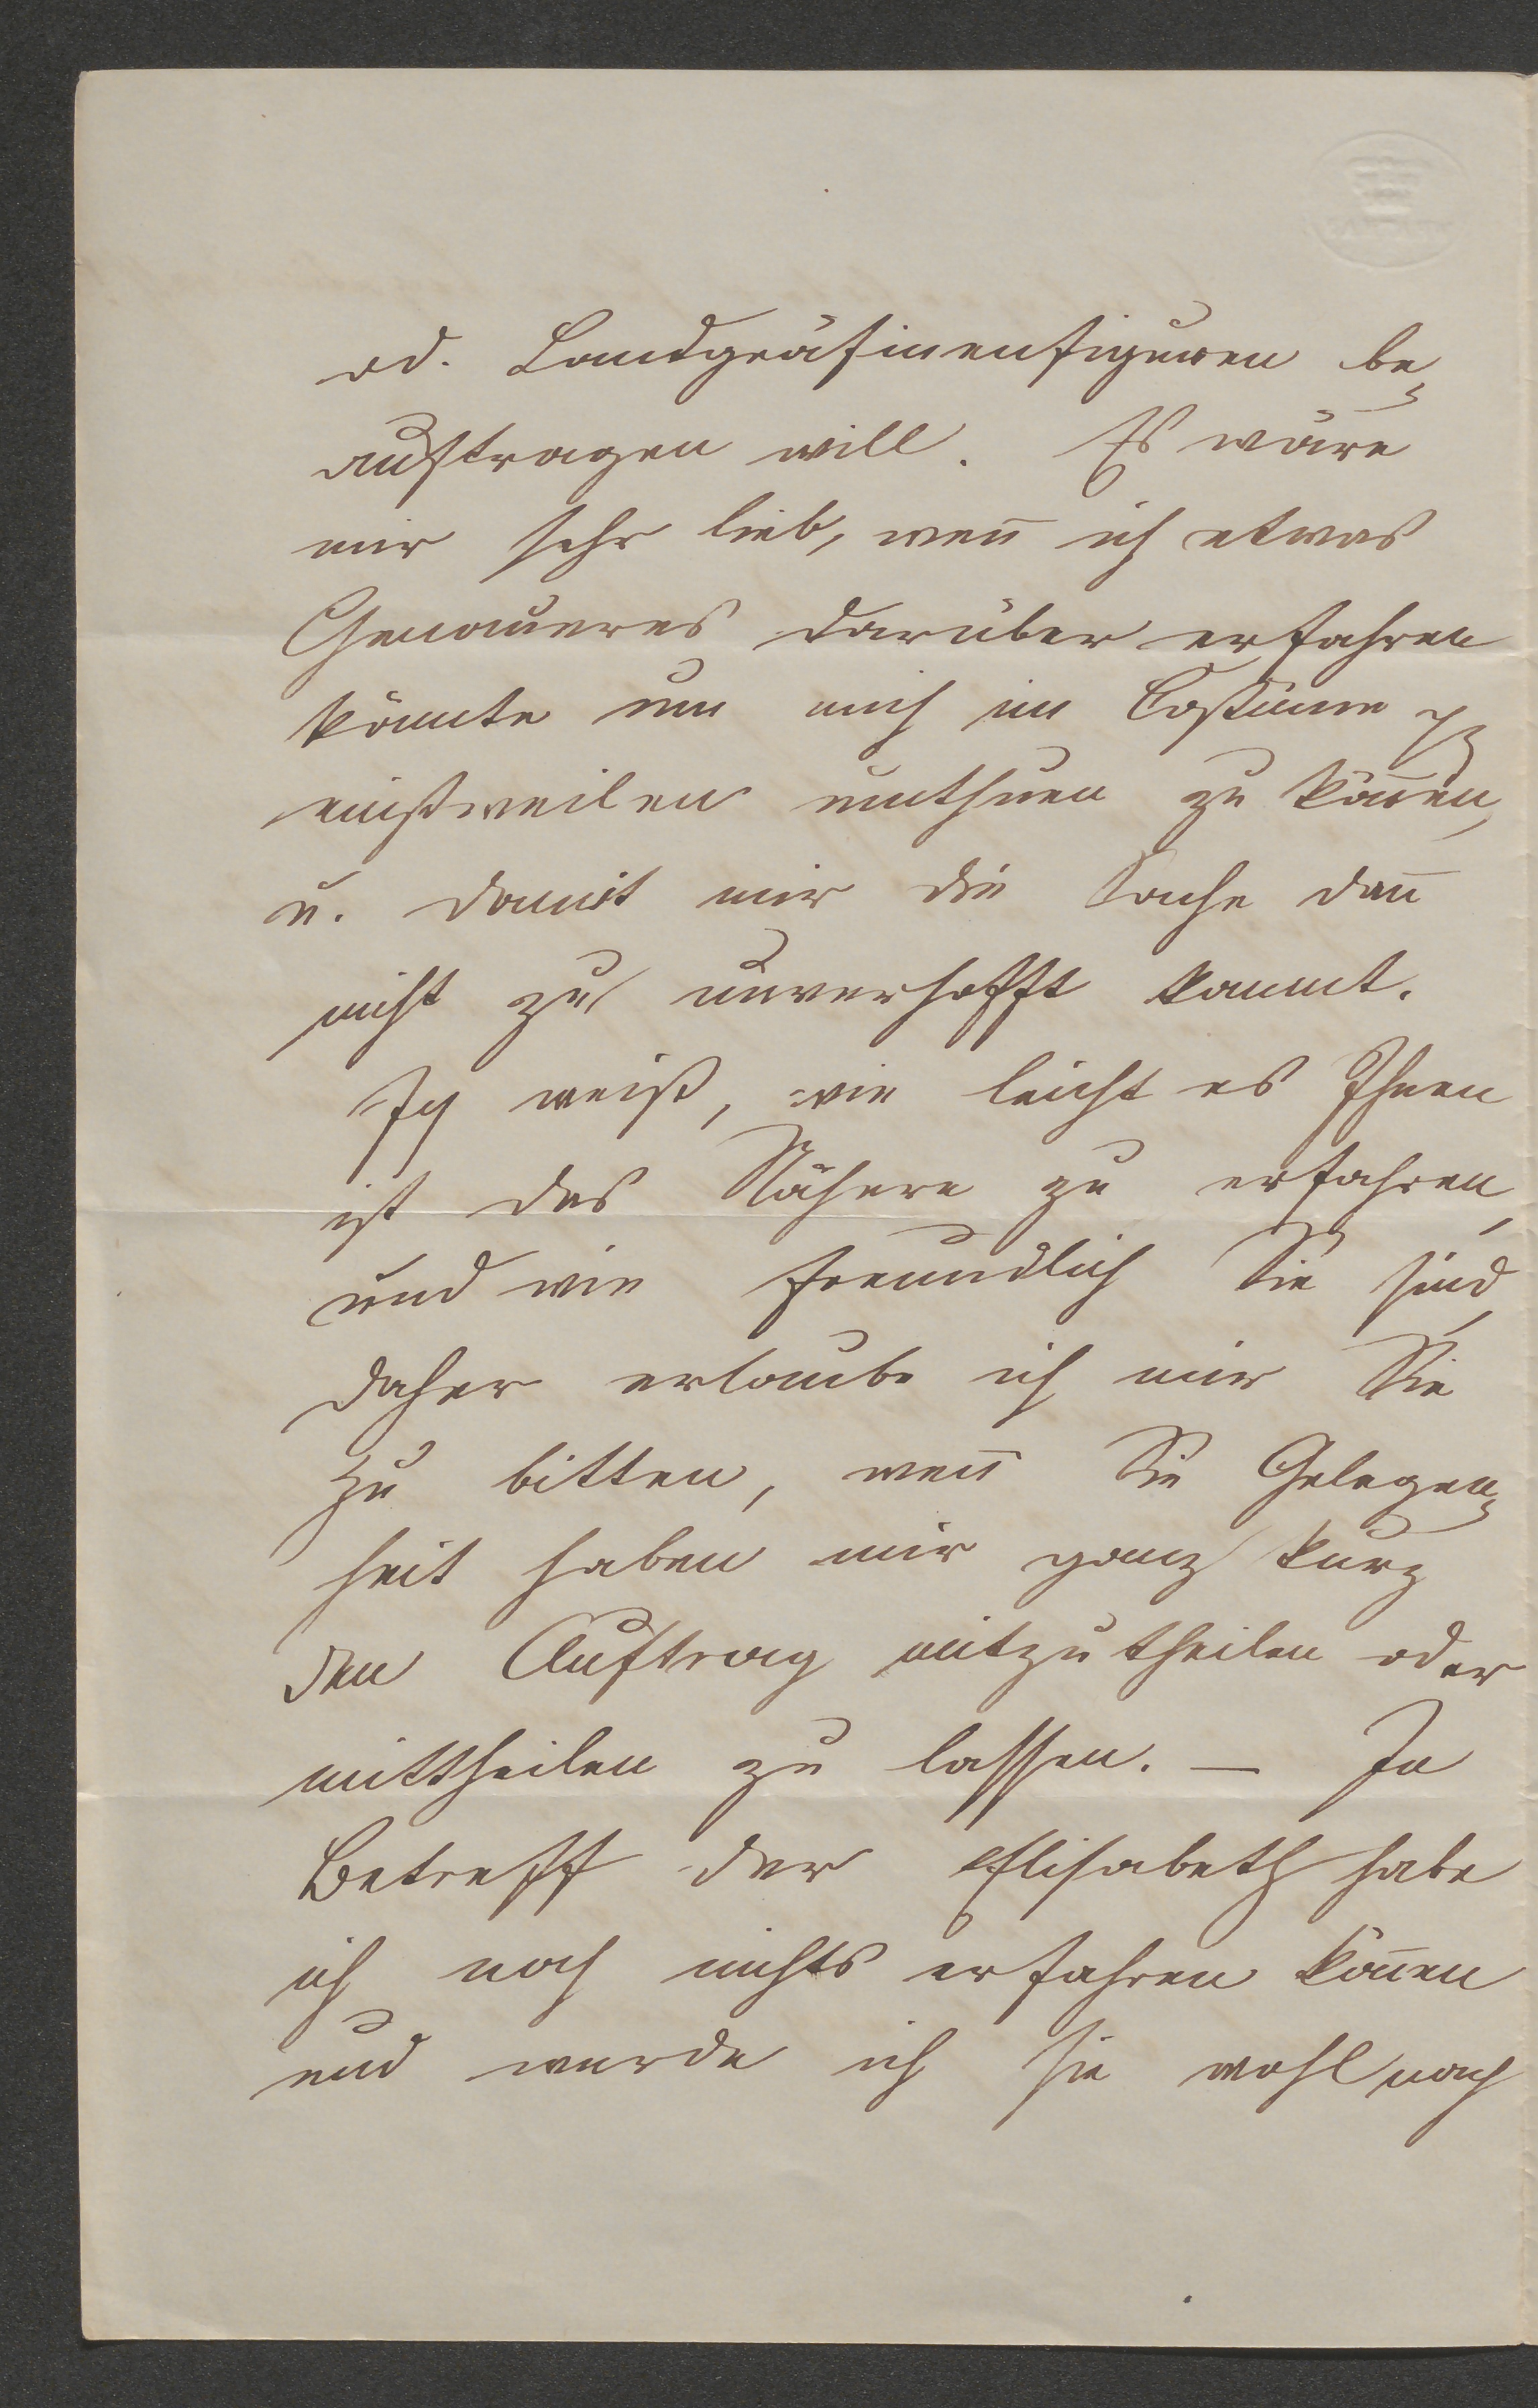 od. Landgräfinenfiguren be-
auftragen will. Es wäre
mir sehr lieb, wen̄ ich etwas
Genaueres darüber erfahren
könnte um mich im Costüme
einstweilen umthuen zu kön̄en,
u. damit mir die Sache dan̄
nicht zu unverhofft kommt.
Ich weiß, wie leicht es Ihnen
ist das Nähere zu erfahren,
und wie freundlich Sie sind,
daher erlaube ich mir Sie
zu bitten, wen̄ Sie Gelegen-
heit haben mir ganz kurz
den Auftrag mitzutheilen oder
mittheilen zu lassen. — In
Betreff der Elisabeth habe
ich noch nichts erfahren kön̄en
und werde ich sie wohl nach